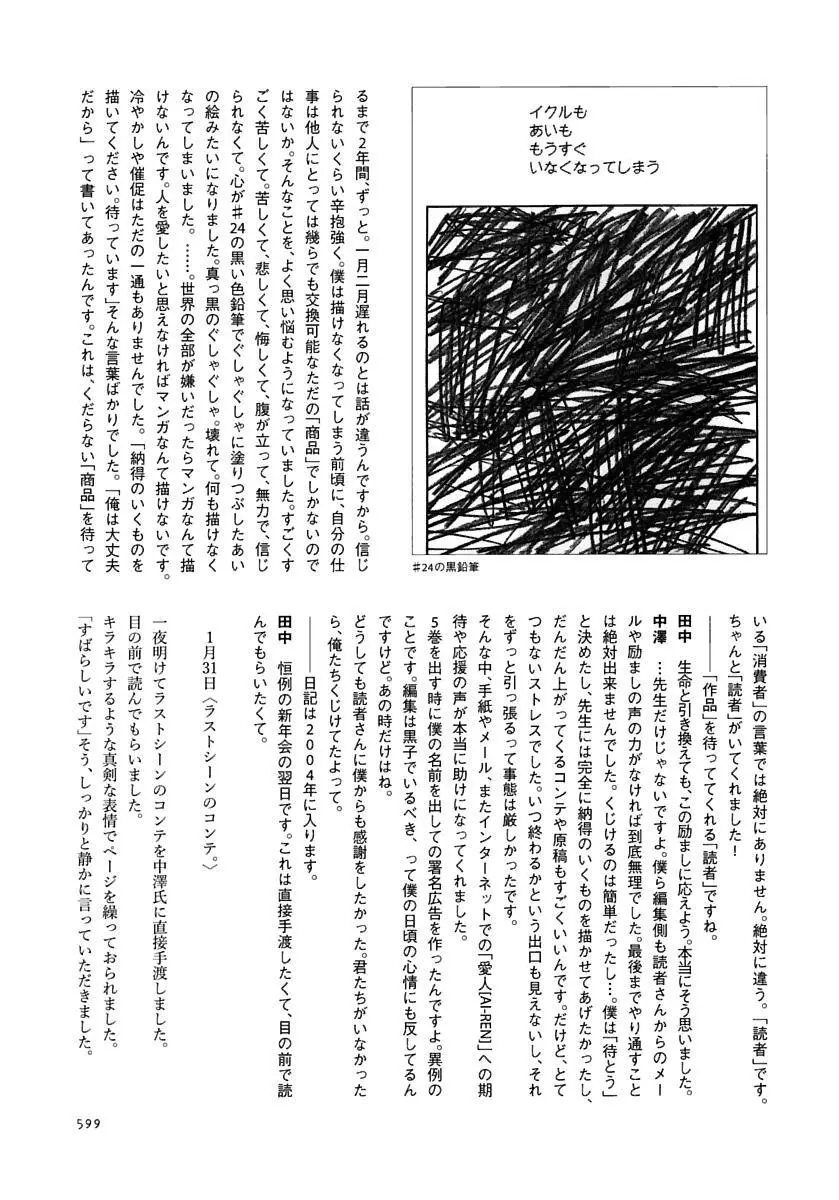 イクルも
あいも
もうすぐ
いなくなってしまう
♯24の黒鉛筆
るまで2年間、ずっと。一月二月遅れるのとは話が違うんですから。信じ
られないくらい辛抱強く。僕は描けなくなってしまう前頃に、自分の仕
事は他人にとっては幾らでも交換可能なただの「商品」でしかないので
はないか。そんなことを、よく思い悩むようになっていました。すごくす
ごく苦しくて。苦しくて、悲しくて、悔しくて、腹が立って、無力で、信じ
られなくて。心が♯24の黒い色鉛筆でぐしゃぐしゃに塗りつぶしたあい
の絵みたいになりました。真っ黒のぐしゃぐしゃ。壊れて。何も描けなく
なってしまいました。……。世界の全部が嫌いだったらマンガなんて描
けないんです。人を愛したいと思えなければマンガなんて描けないです。
冷やかしや催促はただの一通もありませんでした。「納得のいくものを
描いてください。待っています」そんな言葉ばかりでした。「俺は大丈夫
だから」って書いてあったんです。これは、くだらない「商品」を待って
いる「消費者」の言葉では絶対にありません。絶対に違う。「読者」です。
ちゃんと「読者」がいてくれました!
――「作品」を待っててくれる「読者」ですね。
田中　生命と引き換えても、この励ましに応えよう。本当にそう思いました。
中澤　…先生だけじゃないですよ。僕ら編集側も読者さんからのメー
ルや励ましの声の力がなければ到底無理でした。最後までやり通すこと
は絶対出来ませんでした。くじけるのは簡単だったし…。僕は「待とう」
と決めたし、先生には完全に納得のいくものを描かせてあげたかったし、
だんだん上がってくるコンテや原稿もすごくいいんです。だけど、とて
つもないストレスでした。いつ終わるかという出口も見えないし、それ
をずっと引っ張るって事態は厳しかったです。
そんな中、手紙やメール、またインターネットでの「愛人[AI-REN]」への期
待や応援の声が本当に助けになってくれました。
5巻を出す時に僕の名前を出しての署名広告を作ったんですよ。異例の
ことです。編集は黒子でいるべき、って僕の日頃の心情にも反してるん
ですけど。あの時だけはね。
どうしても読者さんに僕からも感謝をしたかった。君たちがいなかった
ら、俺たちくじけてたよって。
――日記は2004年に入ります。
田中　恒例の新年会の翌日です。これは直接手渡したくて、目の前で読
んでもらいたくて。
1月31日〈ラストシーンのコンテ。〉
一夜明けてラストシーンのコンテを中澤氏に直接手渡しました。
目の前で読んでもらいました。
キラキラするような真剣な表情でページを繰っておられました。
「すばらしいです」そう、しっかりと静かに言っていただきました。
599